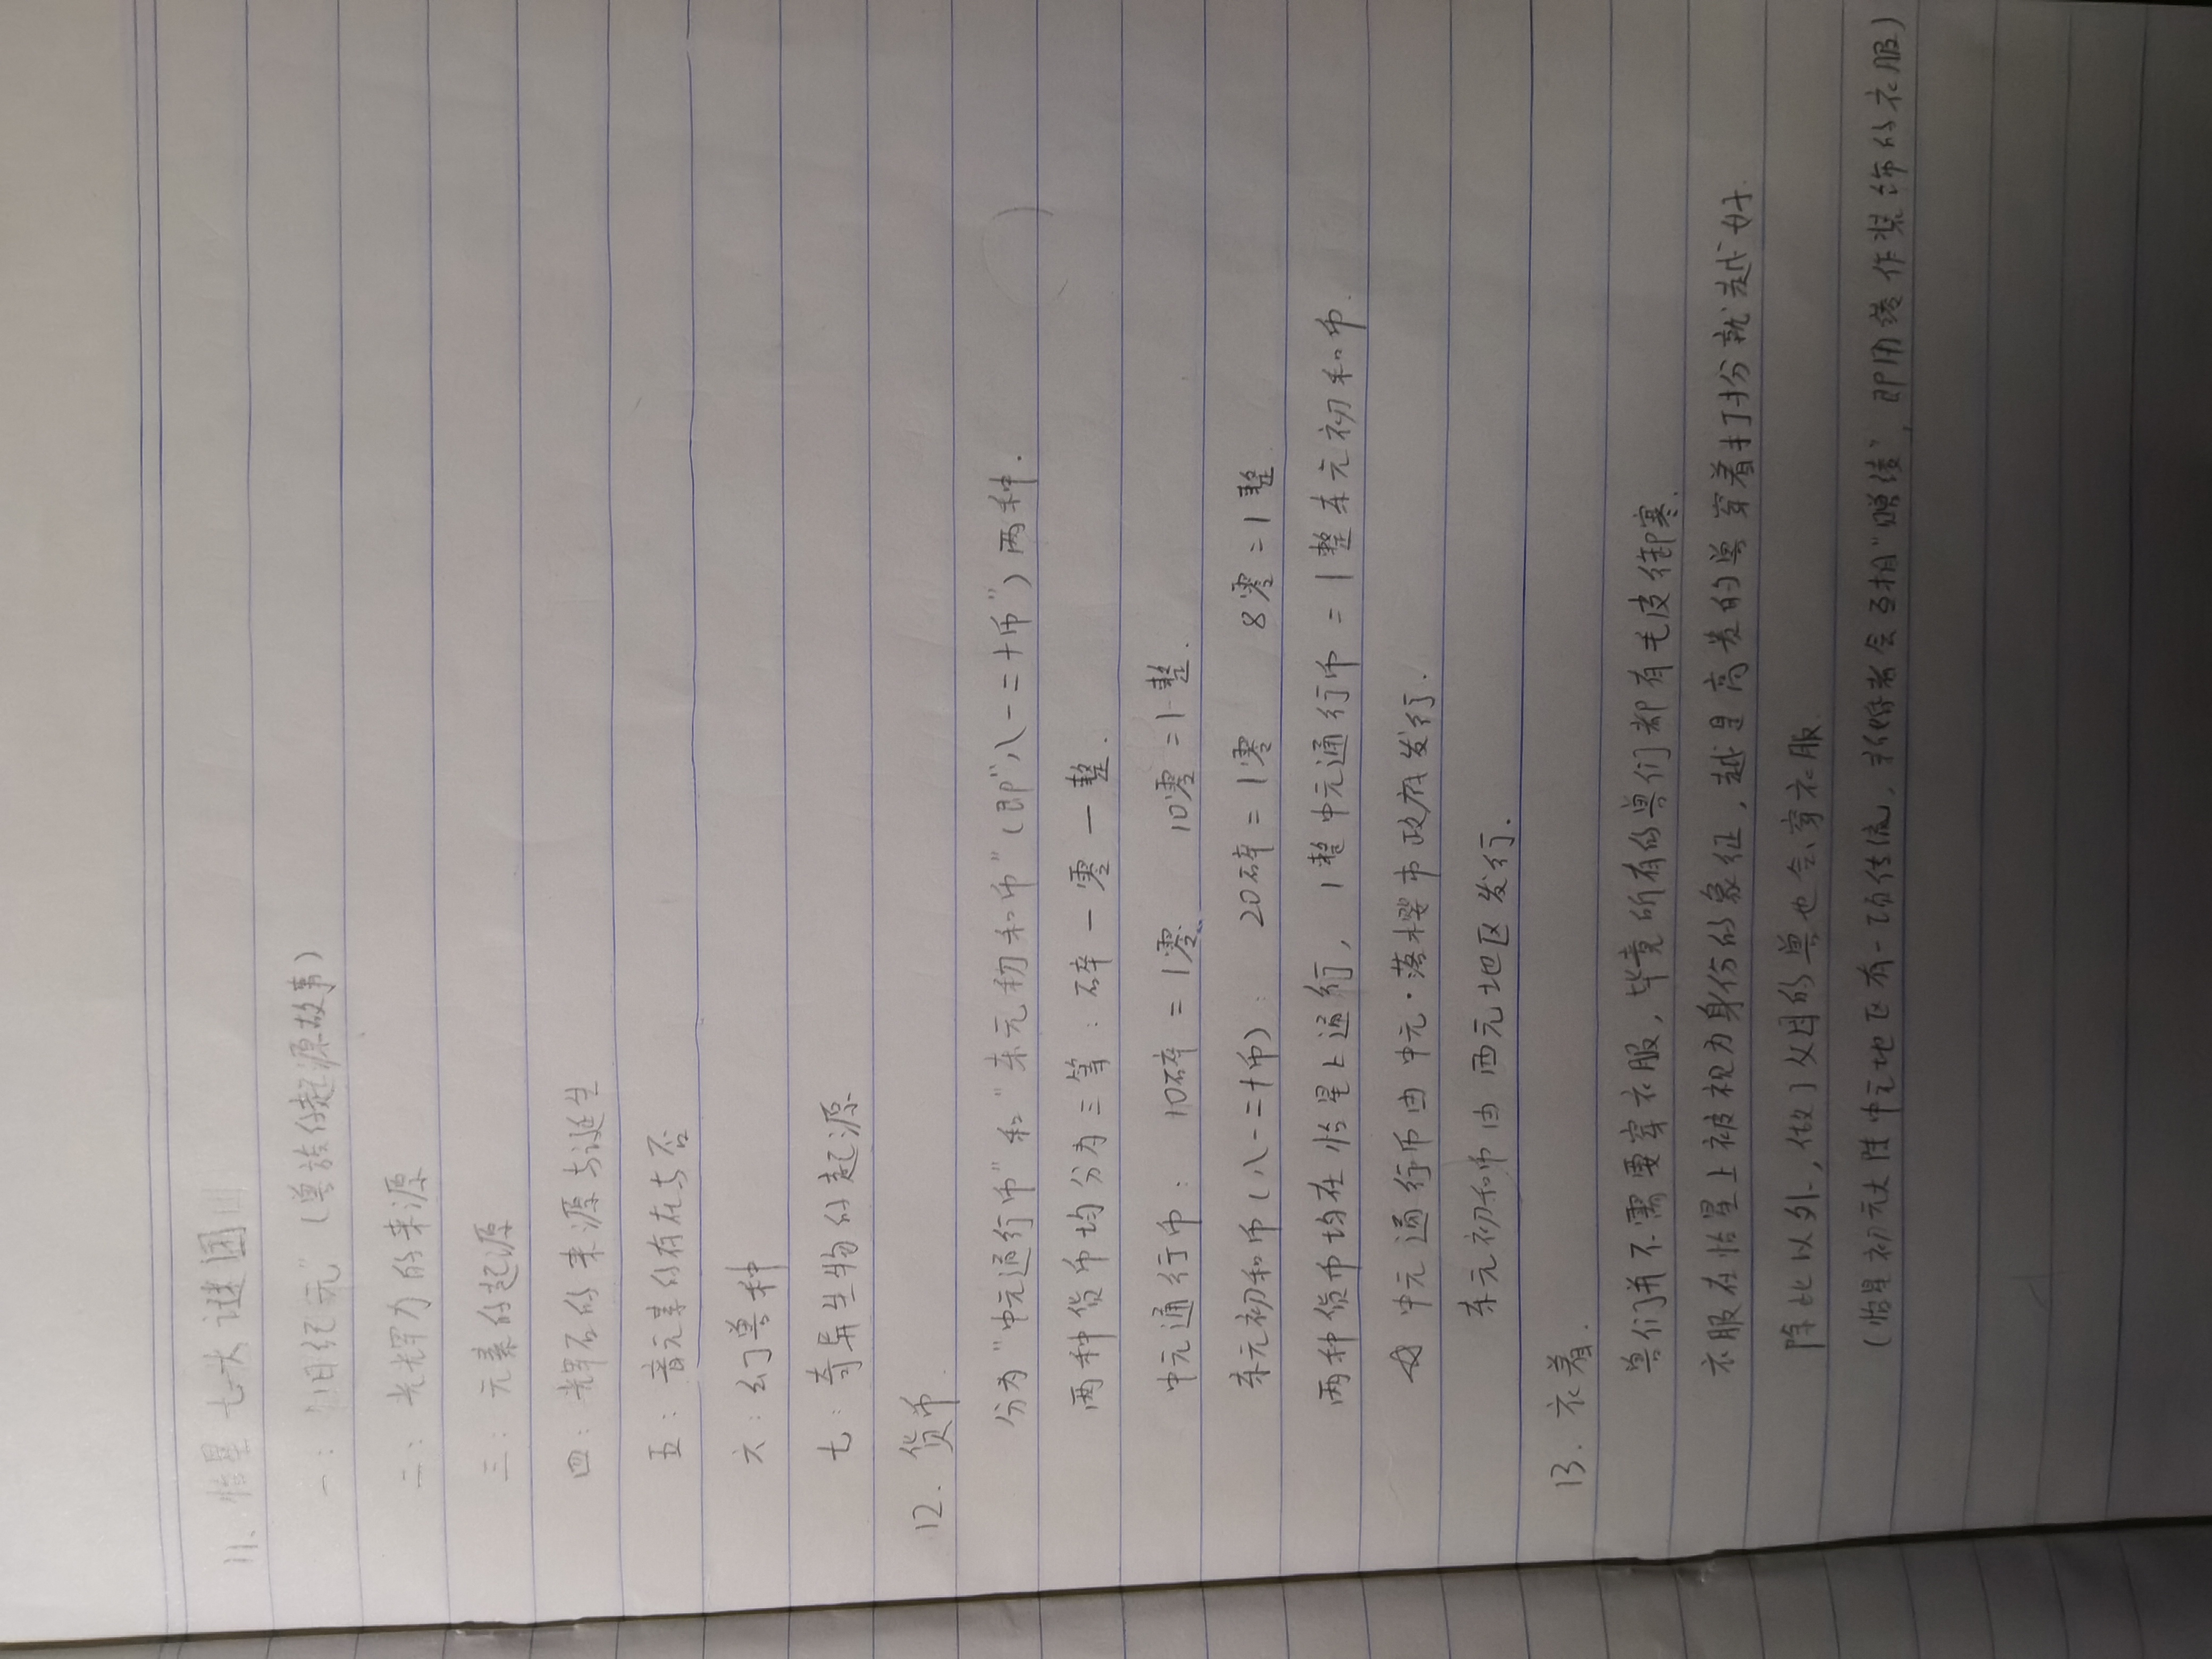 11、怡星七大谜团
一：旧纪元"(兽族的起源故事)
二：光辉力的来源
三：元素的起源
四：辉石的来源与诞生
五：音元素的存在与否
六：幻兽种
七：奇异生物的起源
12.货币
分为"中元通行币"和"东元初和币"(即"八一二十币")两种.
两种货币均分为三等：碎一零一整.
中元通行币： 10碎=1零 10零=1整.
东元初和币(八一二十币)： 20碎=1零 8零=1整.
两种货币均在怡星上通行，1整中元通行币=1整东元初和币.
中元通行币由中元·落樱市政府发行.
东元初和币由西元地区发行.
13.衣着.
兽们并不需要穿衣服，毕竟所有的兽们都有毛皮御寒.
衣服在怡星上被视为身份的象征，越是高贵的兽穿着打扮就越好.
除此以外，做了父母的兽也会穿衣服
(怡星初元大陆中元地区有一项传统，求婚者会互相"赠绫"，即用绫作装饰的衣服)